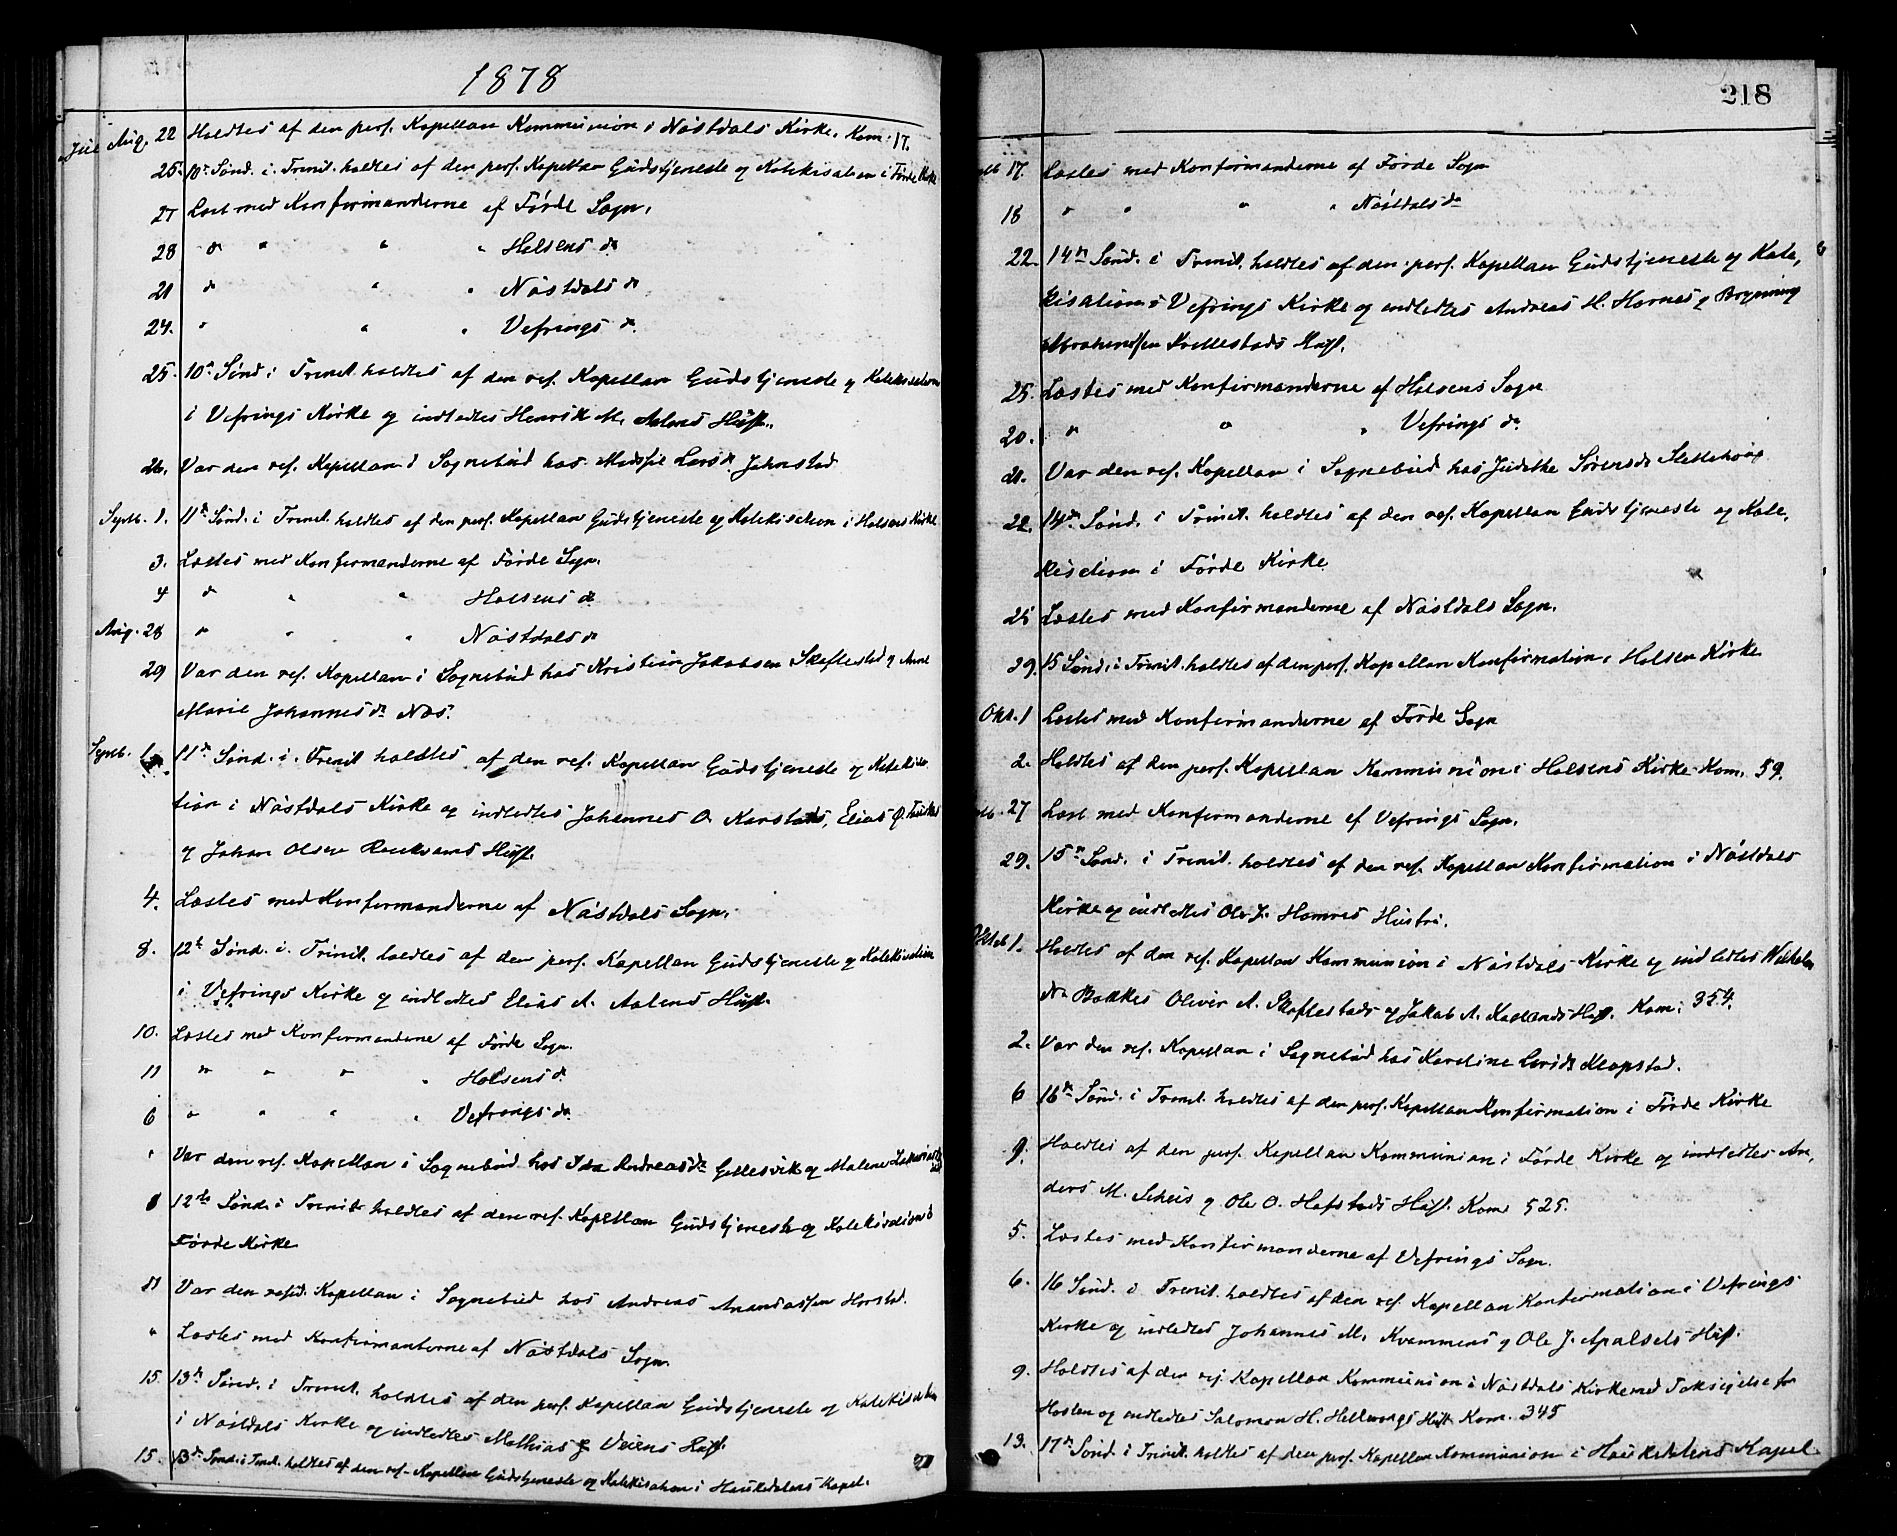 1878
Juli Aug. 22 Holdtes af den pers. Kapellan Kommunion i Nøstdals Kirke. Kom. 17.
25. 10de Sønd. i Trinit. holdtes af den pers. Kapellan Gudstjeneste og Katekisation i Førde Kirke
27 Læst med Konfirmanderne af Førde Sogn.
28 do " " " Holsens do
21 do " " Nøstdals do
24. " " " Vefrings do.
25. 10de Sønd. i Trinit. holdtes af den res. Kapellan Gudstjeneste og Katekisation
i Vefrings Kirke og indledtes Henrik M. Aalens Hust.
26. Var den res. Kapellan i Sognebud hos Larsdr. Jahnstad
Septb. 1. 11te Sønd. i Trinit. holdtes af den pers. Kapellan Gudstjeneste og Katekisation i Holsens Kirke
3. Læstes med Konfirmanderne af Førde Sogn.
4 do " " Holsens do
Aug. 28 " " " Nøstdals do
29 Var den res. Kapellan i Sognebud hos Kristian Jakobsen Skeflestad og Anne
Marie Johannesdr. Næs.
Septb. 1. 11te Sønd. i Trinit. holdtes af den res. Kapellan Gudstjeneste og Katekisa-
tion i Nøstdals Kirke og indledtes Johannes O. Karstads, Elias Ø.
og Johan Olsen Hust.
4. Læstes med Konfirmanderne af Nøstdals Sogn.
8. 12te Sønd. i Trinit. holdtes af den pers. Kapellan Gudstjeneste og Katekisation
i Vefrings Kirke og indledtes Elias A. Aalens Hust.
10. Læstes med Konfirmanderne af Førde Sogn.
11 " " " " Holsens do.
6 " " " " Vefrings do.
" Var den res. Kapellan i Sognebud hos Ida Andreasdr. Gellesvik og Malene
8 12te Sønd. i Trinit. holdtes af den res. Kapellan Gudstjeneste og Katekisation i
Førde Kirke
11 Var den resid. Kapellan i Sognebud hos Andreas Anandassen Horstad.
" Læstes med Konfirmanterne af Nøstdals Sogn.
15. 13de Sønd. i Trinit. holdtes af den pers. Kapellan Gudstjeneste og Katekisation
i Nøstdals Kirke og indledtes Mathias Veiens Hust.
15. 13de Sønd. i Trinit. holdtes af den res. Kapellan Gudstjeneste og Katekisation i Haukedalens Kapel.
218
17. Læstes med Konfirmanderne af Førde Sogn
18 " " " " Nøstdals do
22. 14de Sønd. i Trinit. holdtes af den pers. Kapellan Gudstjeneste og Kate-
kisation i Vefrings Kirke og indledtes Andreas H. Hornes og Brynning
Abrahamssen Kvellestads Hust.
25. Læstes med Konfirmanderne af Holsens Sogn
20. " " " Vefrings do.
21. Var den res. Kapellan i Sognebud hos Judithe Sørensdr.
22. 14de Sønd. i Trinit. holdtes af den res. Kapellan Gudstjeneste og Kate-
kisation i Førde Kirke
25 Læstes med Konfirmanderne af Nøstdals Sogn.
29. 15 Sønd. i Trinit. holdtes af den pers. Kapellan Konfirmation i Holsen Kirke
Okt. 1 Læstes med Konfirmanderne af Førde Sogn
2. Holdtes af den pers. Kapellan Kommunion i Holsens Kirke. Kom. 59.
27 Læst med Konfirmanderne af Vefrings Sogn.
29. 15de Sønd. i Trinit. holdtes af den res. Kapellan Konfirmation i Nøstdals
Kirke og indledtes Ole J. Hamres Hustru.
Oktob 1. Holdtes af den res. Kapellan Kommunion i Nøstdals Kirke og indledtes
Bakkes Oliver A. Skeflestads og Jakob A. Hust. Kom: 354.
2. Var den res. Kapellan i Sognebud hos Karoline Klopstad.
6 16de Sønd. i Trinit. holdtes af den pers. Kapellan Konfirmation i Førde Kirke
9. Holdtes af den pers. Kapellan Kommunion i Førde Kirke og indledtes An-
ders M. Scheis og Ole O. Hafstads Hust. Kom: 525.
5. Læstes med Konfirmanderne af Vefrings Sogn.
6. 16 Sønd. i Trinit. holdtes af den res. Kapellan Konfirmation i Vefrings
Kirke og indledtes Johannes M. Kvammens og Ole J. Apalsets Hust.
9. Holdtes af den res. Kapellan Kommunion i Nøstdals Kirke med Taksigelse for
Høsten og indledtes Salomon H. Hellevangs Hust. Kom. 345
13. 17de Sønd. i Trinit. holdtes af den pers. Kapellan Kommunion i Haukedalens Kapel